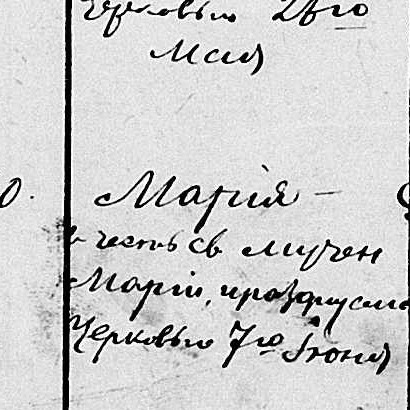 Церковью 26го
Мая
0. Марія —
въ честь св мучен
Маріи, празднуемо
Церковью 7го Іюня